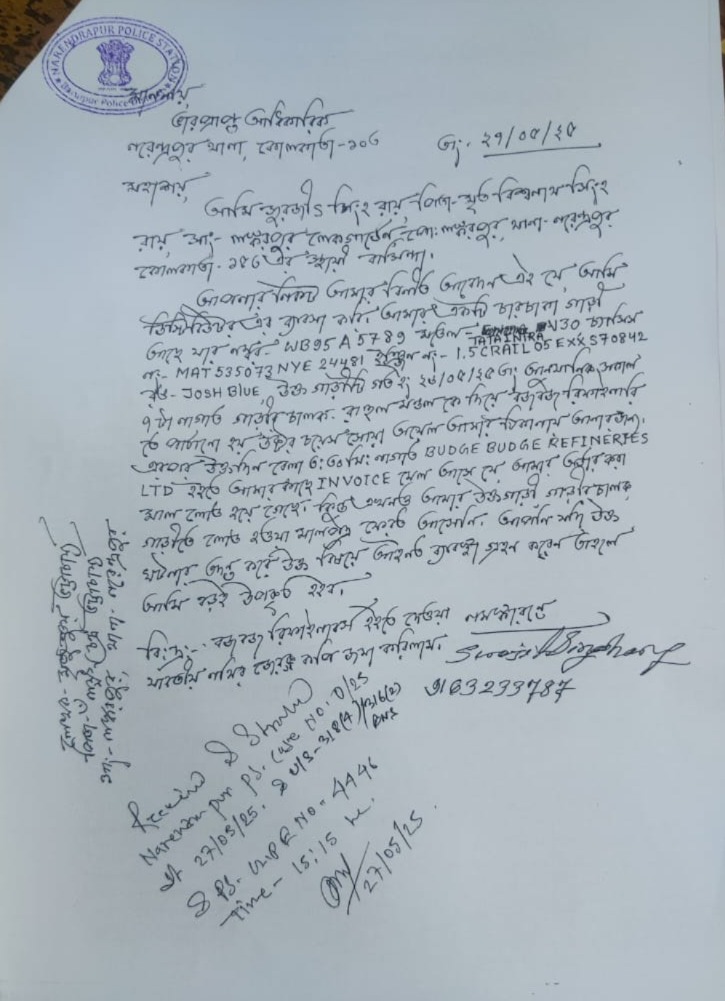 NARENDRAPUR POLICE STATION
মাননীয়,
ভারপ্রাপ্ত আধিকারিক
নরেন্দ্রপুর থানা, কোলকাতা-১০৩
তাং- ২৭/০৫/২৫
মহাশয়,
আমি সুরজীৎ সিংহ রায়, পিতা- মৃত বিশ্বনাথ সিংহ
রায়, সাং- লস্করপুর পোঃ লস্করপুর, থানা- নরেন্দ্রপুর
কোলকাতা- ১৫৩ এর স্থায়ী বাসিন্দা।
আপনার নিকট আমার বিনীত আবেদন এই যে, আমি
ডিস্ট্রিবিউটর এর ব্যবসা করি। আমার একটি চারচাকা গাড়ী
আছে যার নম্বর- WB95A5789 মডেল- TATA INTRA V30 চ্যাসিস
নং- MAT535073NYE24481 ইঞ্জিন নং- 1.5CRAIL05EXXS70842
রঙ- JOSH BLUE, উক্ত গাড়ীটি গত ইং ২৬/০৫/২৫ তাং আনুমানিক সকাল
৭ টা নাগাত গাড়ীর চালক রাহুল মন্ডল কে দিয়ে বজবজ রিফাইনারি
তে পাঠানো হয় সোয়া অয়েল আমার ঠিকানায় আনার জন্য।
এরপর উক্তদিন বেলা মিঃ নাগাত BUDGE BUDGE REFINERIES
LTD হইতে আমার কাছে INVOICE মেল আসে যে আমার অর্ডার করা
মাল লোড হয়ে গেছে। কিন্তু এখনও আমার উক্ত গাড়ী গাড়ীর চালক
গাড়ীতে লোড হওয়া মালপত্র ফেরত আসেনি। আপনি যদি উক্ত
ঘটনার তদন্ত করে উক্ত বিষয়ে আইনত ব্যবস্থা গ্রহণ করেন তাহলে
আমি বড়ই উপকৃত হইব।
বিঃদ্রঃ- বজবজ রিফাইনারি হইতে দেওয়া নমস্কারান্তে
যাবতীয় নথির জেরক্স কপি জমা করিলাম।
9163233787
Received & Started
Narendrapur P.S. Case No. 0/25
dt 27/05/25. U/S- 318(4)/316(2)
BNS
& P.S. GDE NO- 4446
Time- 15:15 hr.
27/05/25.